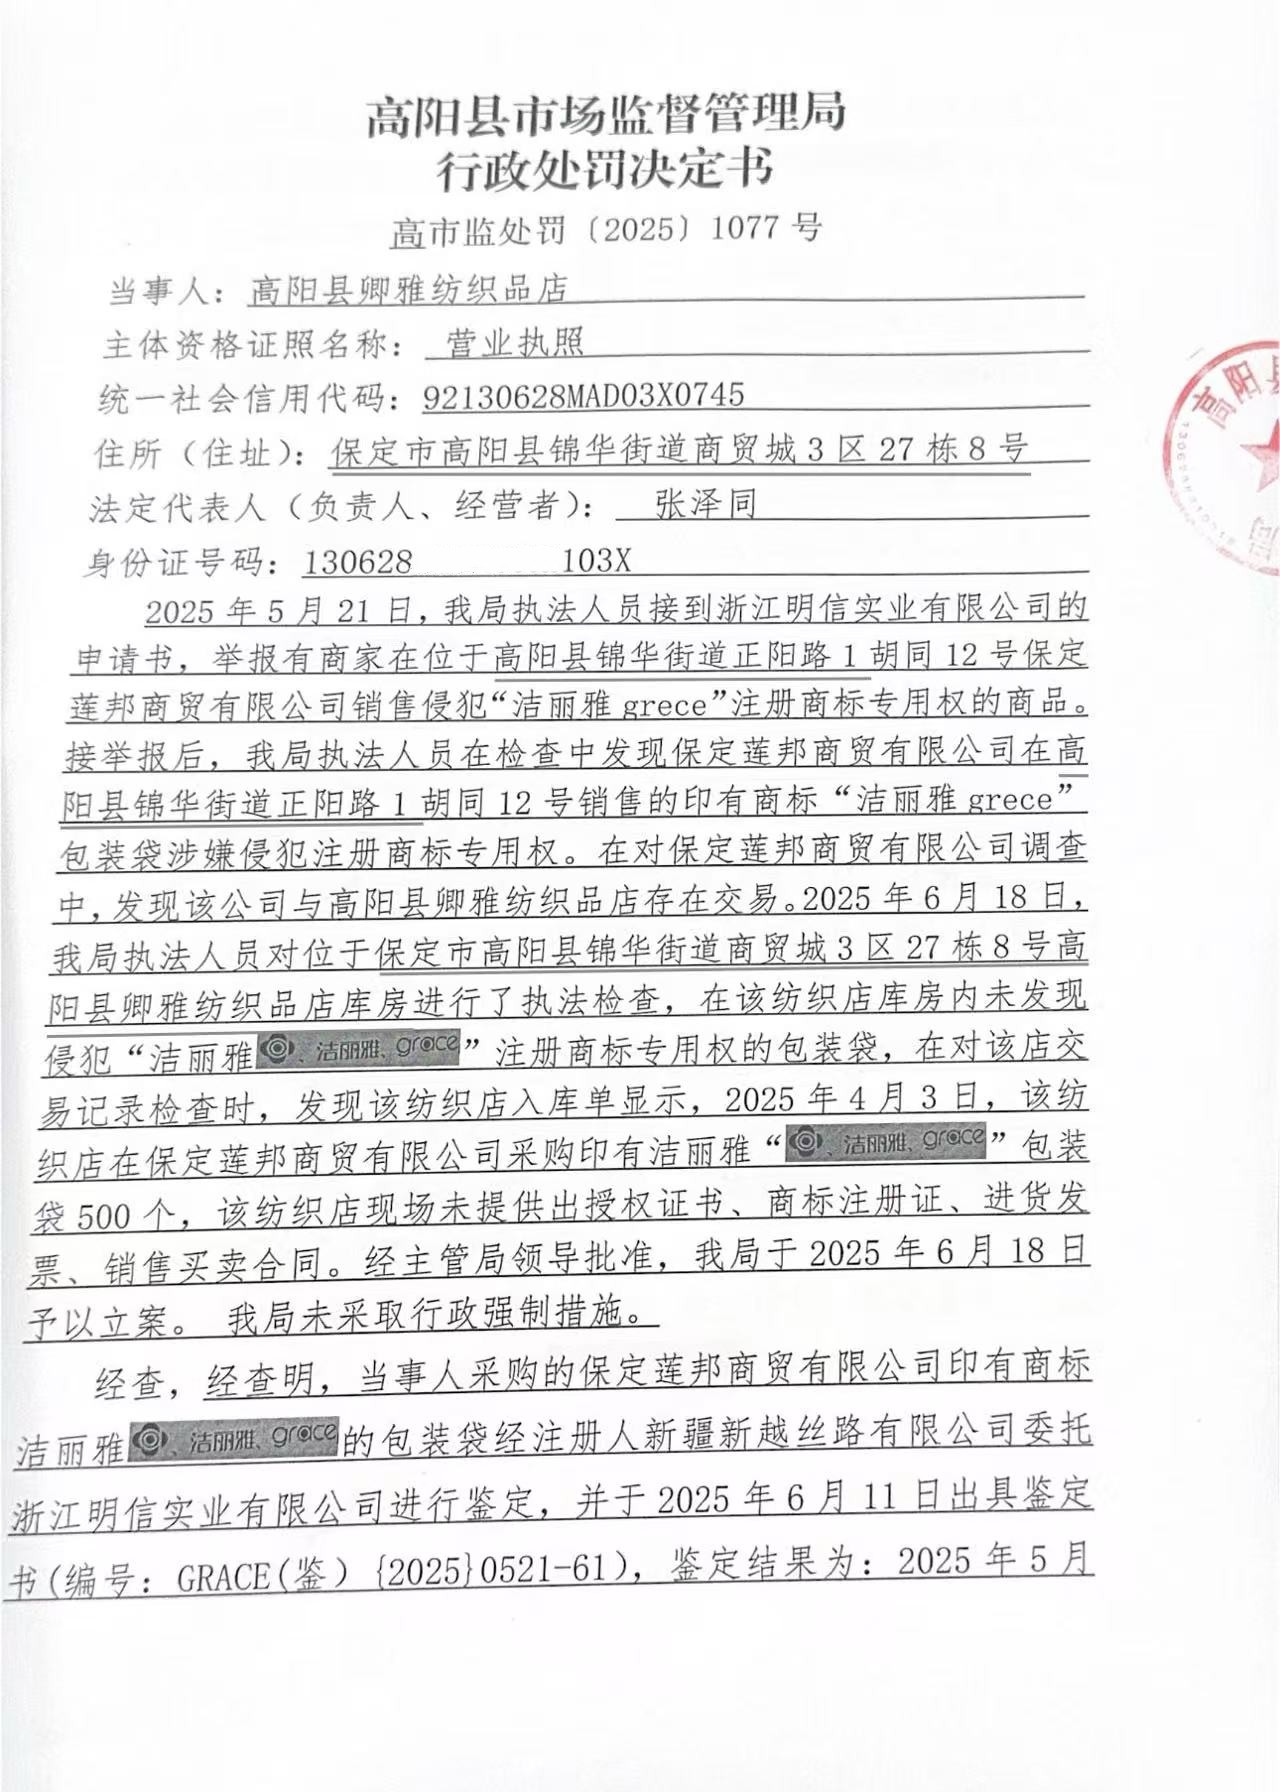 高阳县市场监督管理局
行政处罚决定书
高市监处罚〔2025〕1077号
当事人：高阳县卿雅纺织品店
主体资格证照名称：营业执照
统一社会信用代码：92130628MAD03X0745
住所（住址）：保定市高阳县锦华街道商贸城3区27栋8号
法定代表人（负责人、经营者）：张泽同
身份证号码：130628 103X
2025年5月21日，我局执法人员接到浙江明信实业有限公司的
申请书，举报有商家在位于高阳县锦华街道正阳路1胡同12号保定
莲邦商贸有限公司销售侵犯“洁丽雅grece”注册商标专用权的商品。
接举报后，我局执法人员在检查中发现保定莲邦商贸有限公司在高
阳县锦华街道正阳路1胡同12号销售的印有商标“洁丽雅grece”
包装袋涉嫌侵犯注册商标专用权。在对保定莲邦商贸有限公司调查
中，发现该公司与高阳县卿雅纺织品店存在交易。2025年6月18日，
我局执法人员对位于保定市高阳县锦华街道商贸城3区27栋8号高
阳县卿雅纺织品店库房进行了执法检查，在该纺织店库房内未发现
侵犯“洁丽雅、洁丽雅、grace”注册商标专用权的包装袋，在对该店交
易记录检查时，发现该纺织店入库单显示，2025年4月3日，该纺
织店在保定莲邦商贸有限公司采购印有洁丽雅“、洁丽雅、grace”包装
袋500个，该纺织店现场未提供出授权证书、商标注册证、进货发
票、销售买卖合同。经主管局领导批准，我局于2025年6月18日
予以立案。 我局未采取行政强制措施。
经查，经查明，当事人采购的保定莲邦商贸有限公司印有商标
洁丽雅、洁丽雅、grace的包装袋经注册人新疆新越丝路有限公司委托
浙江明信实业有限公司进行鉴定，并于2025年6月11日出具鉴定
书(编号：GRACE(鉴）{2025}0521-61)，鉴定结果为：2025年5月
高阳县
局